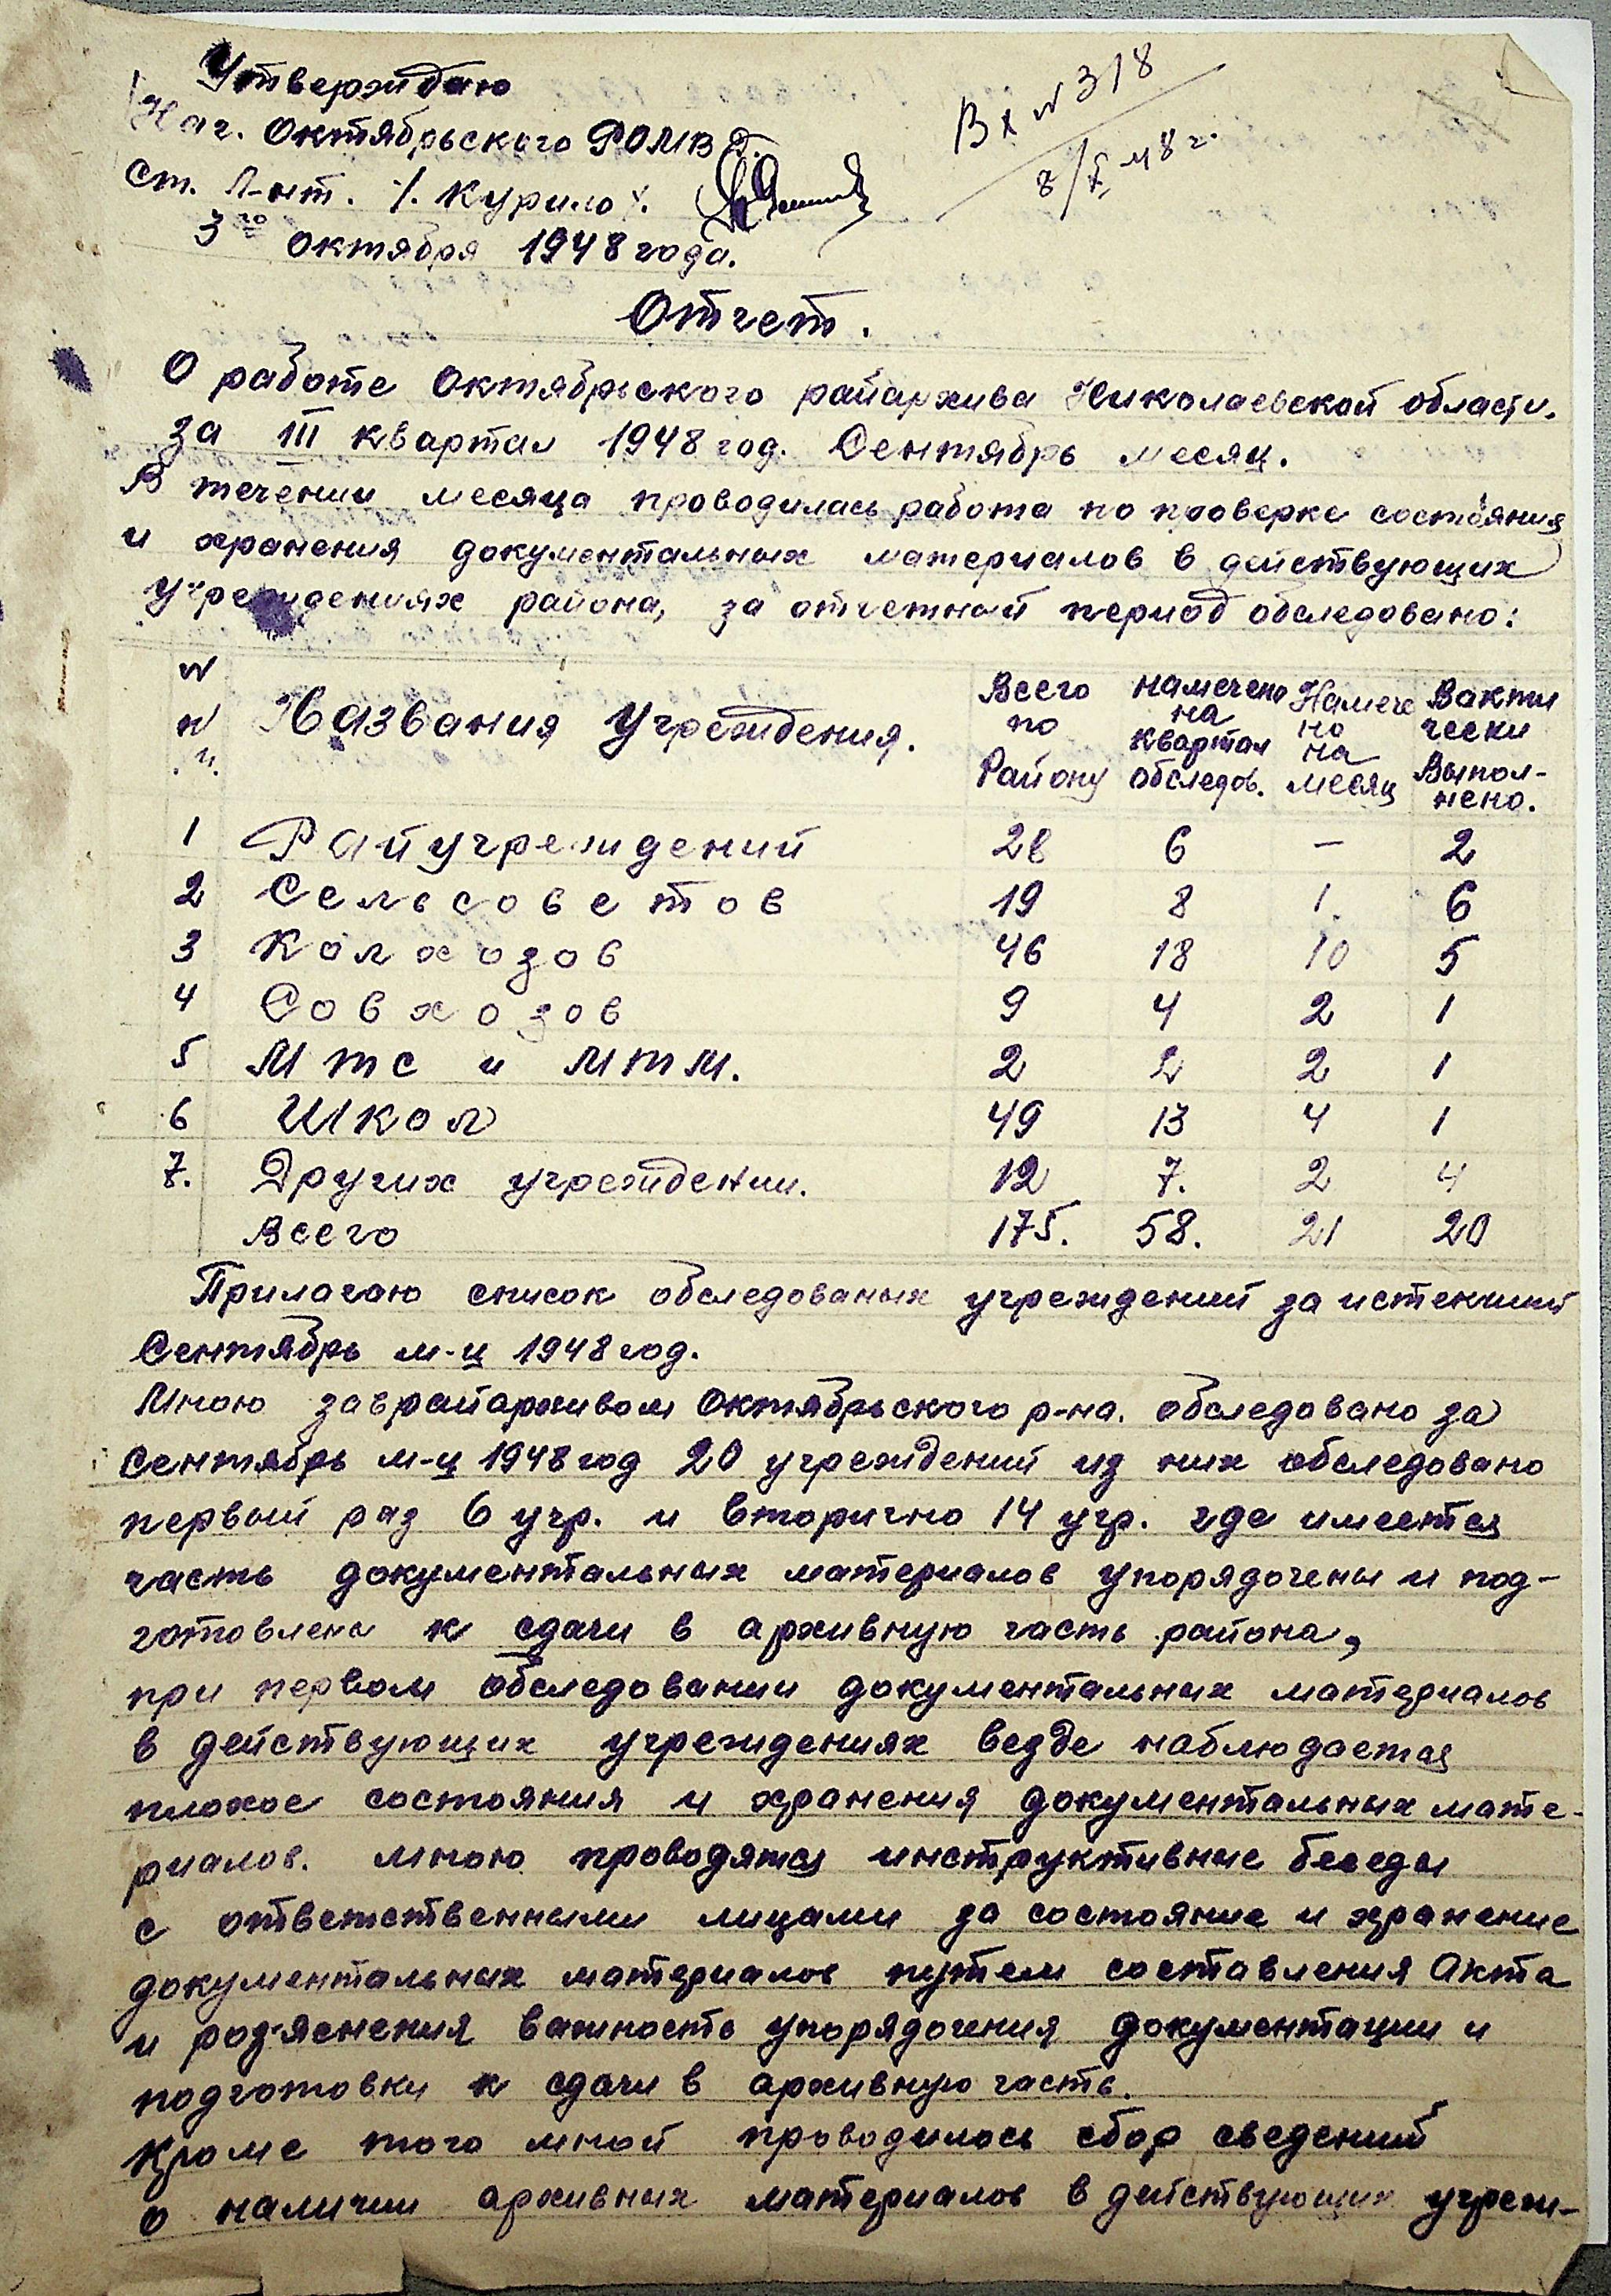 Утверждаю
Нач. Октябрьского РОМВД.
Ст. Л-нт. /. Курило /.
3го октября 1948 года.
Вх № 318
8/X-48 г.
Отчет.
О работе Октябрьского райархива Николаевской области.
за III квартал 1948 год. Сентябрь месяц.
В течении месяца проводилась работа по проверке состояния
и хранения документальных материалов в действующих
учреждениях района, за отчетный период обследовано:
№ п п. Названия Учреждения. Всего по Району намечено на квартал обследов. Намече но на месяц Факти чески Выпол- нено.
1 Райучреждений 28 6 — 2
2 Сельсоветов 19 8 1. 6
3 Колхозов 46 18 10 5
4 Совхозов 9 4 2 1
5 МТС и МТМ. 2 2 2 1
6 Школ 49 13 4 1
7. Других учреждении. 12 7. 2 4
Всего 175. 58. 21 20
Прилагаю список обследованых учреждений за истекший
Сентябрь м-ц 1948 год.
Мною заврайархивом Октябрьского р-на. обследовано за
сентябрь м-ц 1948 год 20 учреждений из них обследовано
первый раз 6 учр. и вторично 14 учр. где имеется
часть документальных материалов упорядочены и под-
готовлены к сдачи в архивную часть района,
при первом обследовании документальных материалов
в действующих учреждениях везде наблюдается
плохое состояния и хранения документальных мате-
риалов. мною проводятся инструктивные беседы
с ответственными лицами за состояние и хранение
документальных материалов путем составления Акта
и роз'яснения важность упорядочения документации и
подготовки к сдачи в архивную часть.
Кроме того мной проводилось сбор сведений
о наличии архивных материалов в действующих учреж-